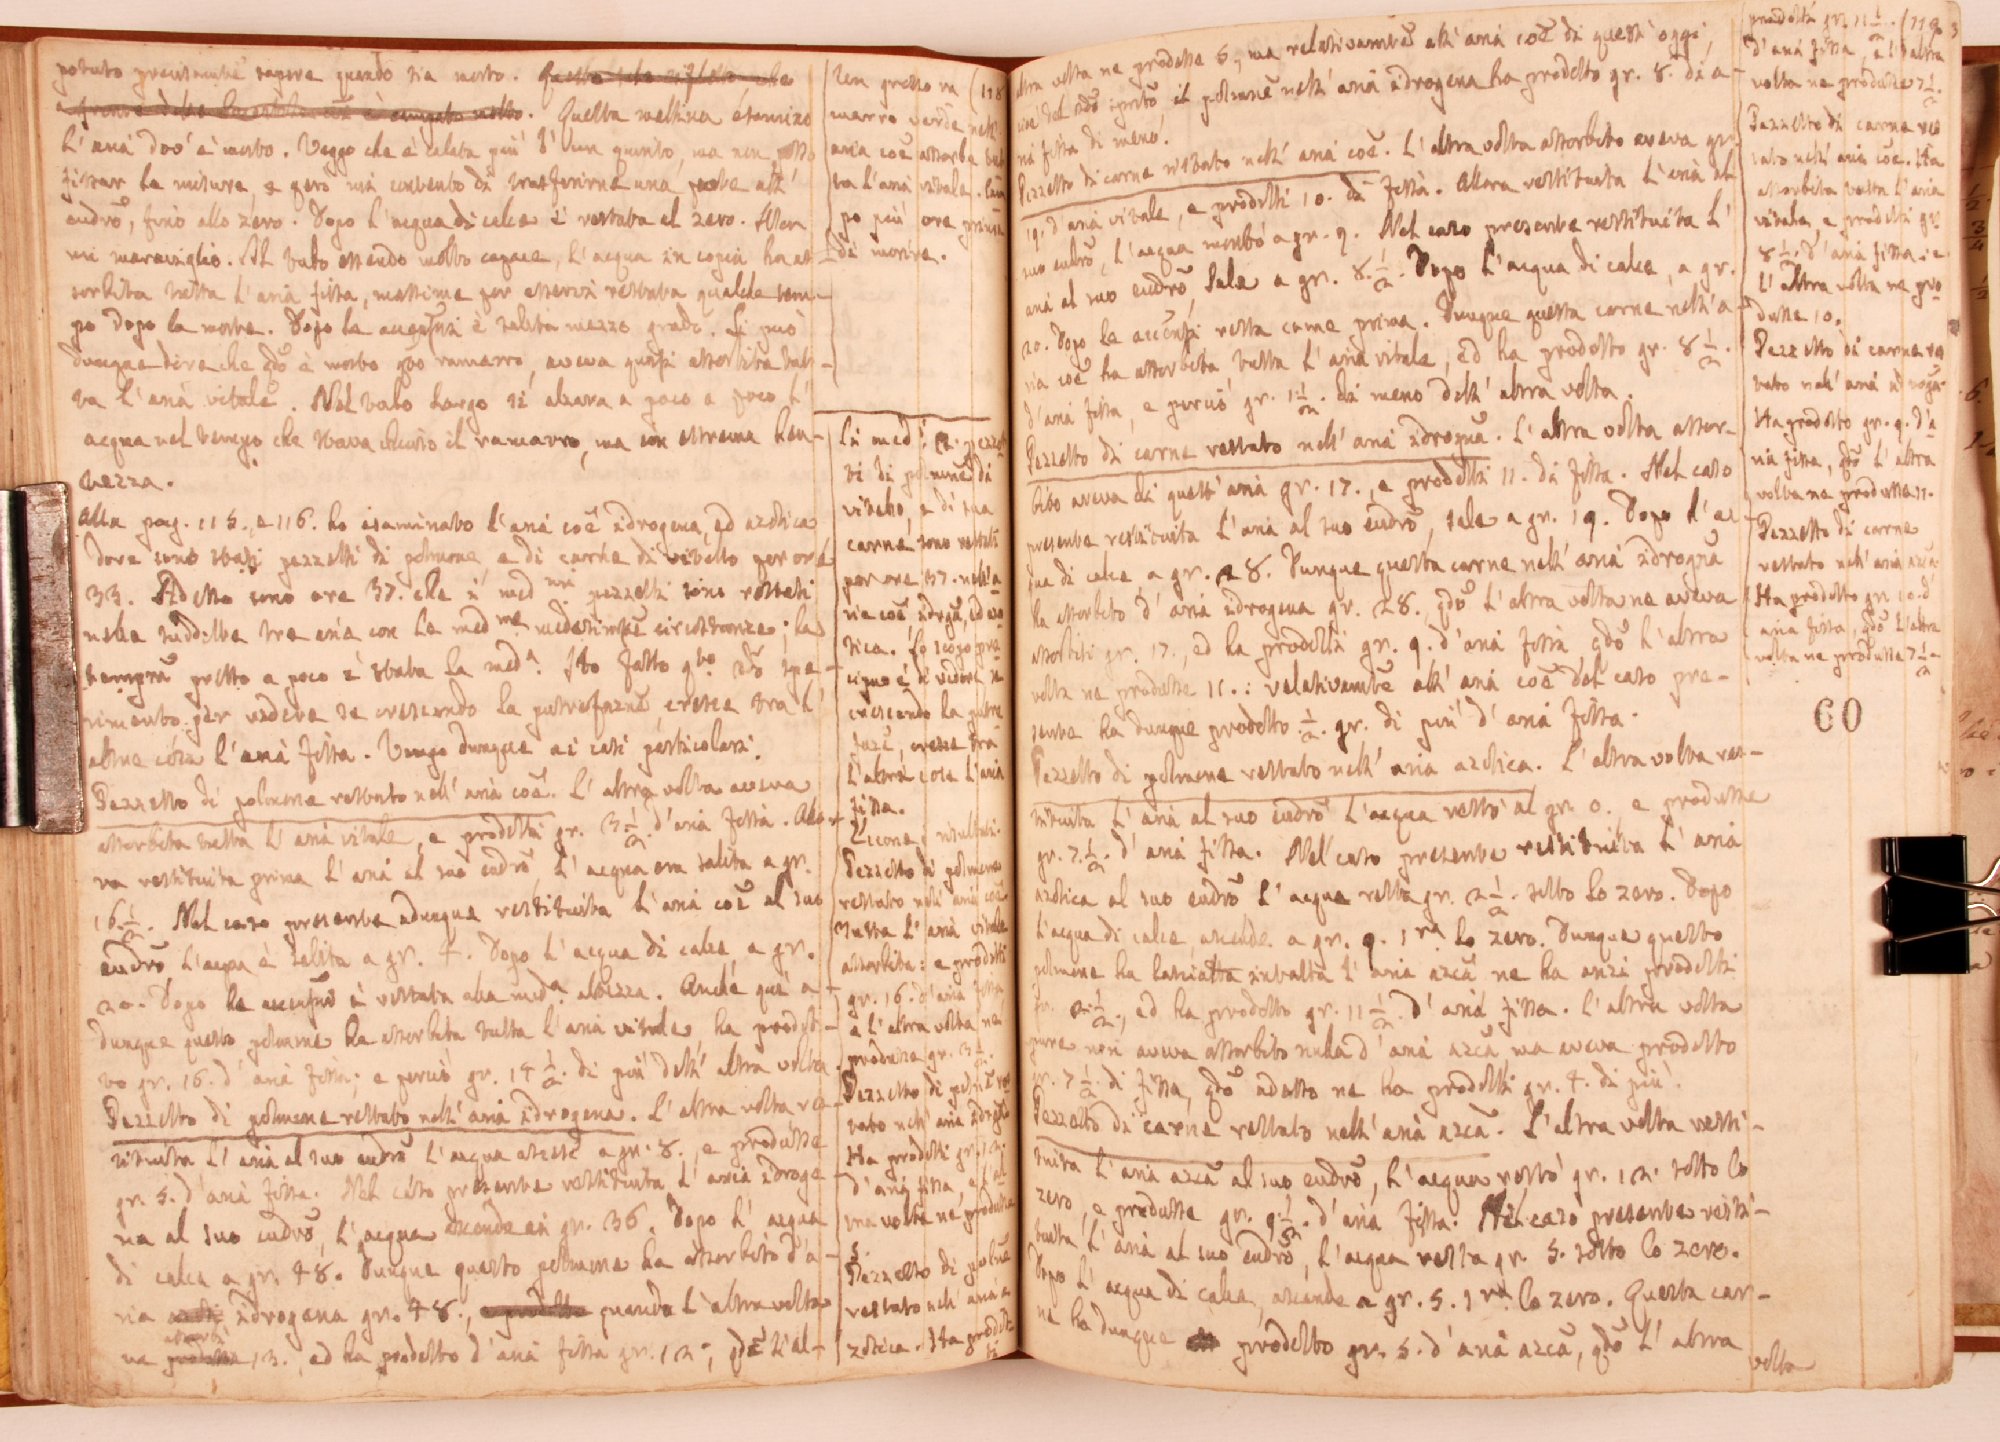 potuto precisamẽte sapere quando sia morto.
Questa mattina esamino
l'aria dov' è morto. Veggo che è calata più d' un quinto, ma non posso
fissar la misura, e però mi contento di trasferirne una parte all'
eudrõ, fino allo zero. Dopo l'acqua di calce è restata al zero. Non
mi maraviglio. Il tubo essendo molto capace, l'acqua in copia ha as-
sorbita tutta l'aria fissa, massime per essersi restata qualche tem-
po dopo la morte. Dopo le è salita mezzo grado. Si può
dunque dire che qdõ è morto qto ramarro, aveva quasi assorbita tut-
ta l'aria vitale. Nel vaso largo si alzava a poco a poco l'
acqua nel tempo che stava chiuso il ramarro, ma con estrema len-
tezza.
Alla pag. 115., e 116. ho esaminato l'aria coẽ idrogena, ed azotica
dove sono stati pezzetti di polmone, e di carne di vitello per ore
33. Adesso sono ore 37. che i med.mi pezzetti sono restati
nelle suddette tre arie con le med.me circostanze; la
presso a poco è stata la med.a Ho fatto q.to 2dõ spe-
rimento per vedere se crescendo la cresce tra l'
altre cose l'aria fissa. Vengo dunque ai casi particolari.
Pezzetto di polmone restato nell' aria coẽ. L'altra volta aveva
assorbita tutta l'aria vitale, e prodotti gr. 3 1/2 d'aria fissa. Allo-
ra restituita prima l'aria al suo eudrõ, l'acqua era salita a gr.
16 1/2. Nel caso presente adunque restituita l'aria coẽ al suo
eudrõ, l'acqua è salita a gr. 4. Dopo l'acqua di calce, a gr.
20. Dopo le è restata alla med.a altezza. Anche quì a-
dunque questo polmone ha assorbita tutta l'aria vitale, ha prodot-
to gr. 16. d'aria fissa; e perciò gr. 14 1/2. di più dell' altra volta.
Pezzetto di polmone restato nell' aria idrogena. L'altra volta re-
stituita l'aria al suo eudrõ l'acqua ascese a gr. 8., e produsse
gr. 5. d'aria fissa. Nel caso presente restituita l'aria idroge-
na al suo eudrõ, l'acqua ascende ai gr. 36. Dopo l'acqua
di calce a gr. 48. Dunque questo polmone ha assorbito d'a-
ria idrogena gr. 48., quando l'altra volta
ne assorbì 13., ed ha prodotto d'aria fissa gr. 12., qdõ l'al-
Un grosso ra- (118
marro verde nell'
aria coẽ assorbe tut-
ta l'aria vitale
po più ore prima
di morire.
Li med.i 2. pezzet-
ti di polmone di
vitello, e di sua
carne sono restati
per ore 37. nell'a-
ria coẽ idrogã, ed azo-
tica. Lo scopo pre-
cipuo è di vedere se
crescendo la putre-
fazẽ, cresce tra
l'altre cose l'aria
fissa.
Eccone i risultati.
Pezzetto di polmone
restato nell' aria coẽ
Tutta l'aria vitale
assorbita: e prodotti
gr. 16. d'aria fissa,
e l'altra volta ne
produsse gr. 3 1/2.
Pezzetto di polmẽ re-
stato nell' aria idrogã
Ha prodotti gr. 12.
d'aria fissa, e l'al-
tra volta ne produsse
5.
Pezzetto di polmẽ
restato nell' aria a-
zotica. Ha prodot-
ti
tra volta ne produsse 5., ma relativamẽte all' aria coẽ di questi oggi,
il polmone nell' aria idrogena ha prodotto gr. 8. di a-
ria fissa di meno.
Pezzetto di carne restato nell' aria coẽ. L'altra volta assorbito aveva gr.
19. d'aria vitale, e prodotti 10. di fissa. Allora restituita l'aria al
suo eudrõ, l'acqua montò a gr. 9. Nel caso presente restituita l'
aria al suo eudrõ, sale a gr. 8 1/2. Dopo l'acqua di calce, a gr.
20. Dopo le resta come prima. Dunque questa carne nell' a-
ria coẽ ha assorbita tutta l'aria vitale, ed ha prodotto gr. 8 1/2.
d'aria fissa, e perciò gr. 1 1/2. di meno dell' altra volta.
Pezzetto di carne restato nell' aria idrogã. L'altra volta assor-
bito aveva di quest' aria gr. 17., e prodotti 11. di fissa. Nel caso
presente restituita l'aria al suo eudrõ, sale a gr. 19. Dopo l'ac-
qua di calce a gr. 28. Dunque questa carne nell' aria idrogã
ha assorbito d'aria idrogena gr. 28., qdõ l'altra volta ne aveva
assorbiti gr. 17., ed ha prodotti gr. 9. d'aria fissa qdõ l'altra
volta ne produsse 11.: relativamẽte all' aria coẽ del caso pre-
sente ha dunque prodotto 1/2. gr. di più d'aria fissa.
Pezzetto di polmone restato nell' aria azotica. L'altra volta res-
tituita l'aria al suo eudrõ l'acqua restò al gr. 0., e produsse
gr. 7 1/2. d'aria fissa. Nel caso presente restituita l'aria
azotica al suo eudrõ l'acqua resta gr. 2 1/2. sotto lo zero. Dopo
l'acqua di calce ascende a gr. 9. s.ra lo zero. Dunque questo
polmone ha lasciatta intatta l'aria azcã ne ha anzi prodotti
gr. 2 1/2., ed ha prodotto gr. 11 1/2. d'aria fissa. L'altra volta
pure non aveva assorbito nulla d'aria azcã ma aveva prodotto
gr. 7 1/2. di fissa, qdõ adesso ne ha prodotti gr. 4. di più.
Pezzetto di carne restato nell' aria azcã. L'altra volta resti-
tuita l'aria azcã al suo eudrõ, l'acqua restò gr. 12. sotto lo
zero, e produsse gr. 9 1/2. d'aria fissa. Nel caso presente resti-
tuita l'aria al suo eudrõ, l'acqua resta gr. 5. sotto lo zero.
Dopo l'acqua di calce, ascende a gr. 5. s.ra lo zero. Questa car-
ne ha dunque prodotto gr. 5. d'aria azcã, qdõ l'altra
volta
prodotti gr. 11 1/2. (119
d'aria fissa, e l'altra
volta ne produsse 7 1/2.
Pezzetto di carne res-
tato nell' aria coẽ. Ha
assorbita tutta l'aria
vitale, e prodotti gr.
8 1/2. d'aria fissa: e
l'altra volta ne pro-
dusse 10.
Pezzetto di carne re-
stato nell' aria idrogã.
Ha prodotto gr. 9. d'a-
ria fissa, qdõ l'altra
volta ne produsse 11.
Pezzetto di carne
restato nell' aria azcã.
Ha prodotto gr. 10. d'
aria fissa, qdõ l'altra
volta ne produsse 7 1/2.
60